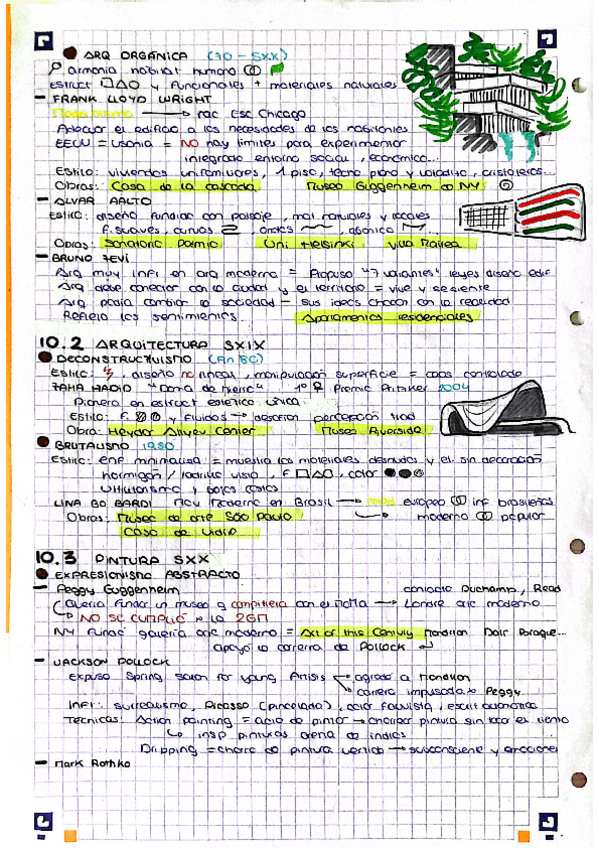 ARQ ORGÁNICA (10 - SXX)
armonia habitat humano
Estruct y Funcionales + materiales naturales
- FRANK LLOYD WRIGHT
Modernismo → nac Esc Chicago
Adecuar el edificio a las necesidades de los habitantes
EEUU = Usonia = NO hay límites para experimentar
integrado entorno social, económico...
Estilo: viviendas unifamiliares, 1 piso, techo plano y voladito, cristaleras...
Obras: Casa de la cascada Museo Guggenheim de NY
- ALVAR AALTO
Estilo: diseño fundido con paisaje, mat naturales y locales
F. suaves, curvas, ondas, abanico
Obras: Sanatorio Paimio Uni Helsinki Villa Mairea
- BRUNO ZEVI
Arq muy infl en arq moderna = Propuso "7 variantes" leyes diseño edif
Arq debe conectar con la ciudad y el territorio = vive y se siente
Arq podia cambiar la sociedad - sus ideas chocan con la realidad
Refleja los sentimientos. Apartamentos residenciales
10.2 ARQUITECTURA SXIX
DECONSTRUCTIVISMO
Estilo: , diseño no lineal, manipulación superficie = caos controlado
ZAHA HADID "Dama de hierro" 1ª ♀ Premio Pritzker 2004
Pionera en estruct estética única
Estilo: F. y Fluidos → desafian percepción trad
Obra: Heydar Aliyev Center Museo Riverside
BRUTALISMO 1950
Estilo: enf minimalista = muestra los materiales desnudos y el. sin decoración
hormigón / ladrillo visto, F , color
LINA BO BARDI Mov Moderno en Brasil → europeo inf brasileñas
Obras: Museo de arte São Paulo → moderno popular
Casa de Vidrio
10.3 PINTURA SXX
EXPRESIONISMO ABSTRACTO
- Peggy Guggenheim contacto Duchamp, Read
Queria fundar un museo q compitiera con el MoMA → Londre arte moderno
→ NO SE CUMPLIÓ x la 2GM
NY Funda galería arte moderno = Art of this Century Mondrian
apoyó la carrera de Pollock
- JACKSON POLLOCK
Expuso Spring Salon for young Artists agradó a Mondrian
carrera impulsada x Peggy
Infl: surrealismo, Picasso (pincelada), color fauvista, escrit automática
Técnicas: Action painting = acto de pintar → chorrear pintura sin tocar el lienzo
→ insp pinturas arena de indios
Dripping = chorro de pintura vertido → subconsciente y emociones
- Mark Rothko